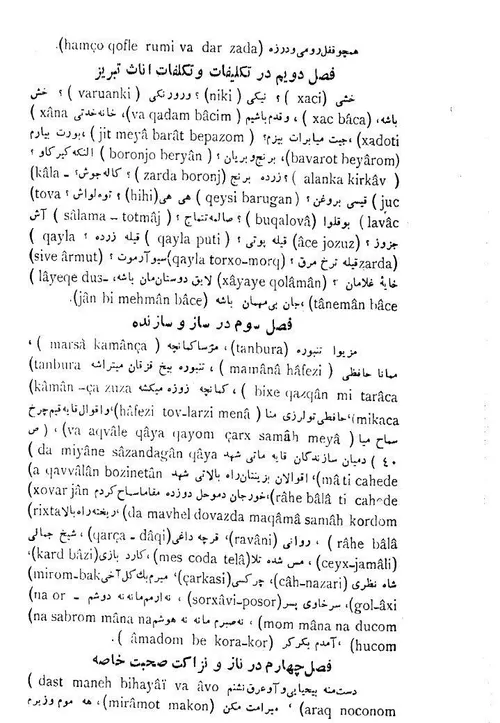 همچو قفل رومی و درزده (hamço qofle rumi va dar zada).
فصل دویم در تکلیفات و تکلفات اناث تبریز
خشی (xaci) ؟ نیکی (niki) ؟ وروزنکی (varuanki) ؟ خش
باشه، (xac bâca) ، وقدم باشیم (va qadam bâcim)، خانه خدتی (xâna
xadoti)، جیت میا برات بپزم؟ (jit meyâ barât bepazom) ، بورت بیارم
(bavarot heyârom)، برنج و بریان؟ (boronjo beryân) ؟ النکه کیرکاو؟
(alanka kirkâv) ؟ زرده برنج (zarda boronj) ؟ کاله جوش؟ (kâla-
juc) قیسی بروغن؟ (qeysi barugan) ؟ هی هی (hihi)؟ توه لواش؟ (tova
lavâc) ؟ بوقلوا (buqalovâ) ؟ صالمه تتماج؟ (sâlama – totmâj) ؟ آش
جزوز؟ (âce jozuz) ؟ قیله پوتی؟ (qayla puti) ؟ قیله زرده؟ (qayla
zarda) قیله ترخ مرق؟ (qayla torxo-morq) سیوآرموت؟ (sive ârmut)
خایهٔ غلامان؟ (xâyaye qolâmân) ؟ لایق دوستان مان باشه، (lâyeqe dus-
tânemân bâce)، جان بی مهمان باشه (jân bi mehmân bâce).
فصل سوم در ساز و سازنده
مزبوا تنبوره (tanbura)، مژسا کمانچه (marsâ kamânça) ،
مما نا حافظی (mamânâ hâfezi) ، تنبوره بیخ قزقان میتراشه (tanbura
bixe qazqân mi tarâca) ، کمانچه زوزه میکشه (kâmân –ça zuza
mikaca)، حافظی تو لرزی منا (hâfezi tov-larzi menâ)، واقوال قایه قیم چرخ
سماح میا (va aqvâle qâya qayom çarx samâh meyâ) ، (ص
۴۰) دمیان سازندگان قایه ماتی شهد (da miyâne sâzandagân qâya
mâti cahede)، اقوالان بزینتان راه بالاتی شهد (a qavvâlân bozinetân
râhe bâlâ ti cahede)، خورجان دموحل دوزده مقاماسماح کردم (xovar jân
da mavhel dovazda maqâmâ samâh kordom)، ریخته راه بالا (rixta
râhe bâlâ) ، روانی (ravâni)، قرچه داغی (qarça – dâqi)، شیخ جمالی
(ceyx-jamâli)، مس شده تلا (mes coda telâ)، کارد بازی (kard bâzi)،
شاه نظری (câh-nazari)، چرکسی (çarkasi)، میرم بك گل آخی (mirom-bak
gol-âxi)، سرخاوی پسر (sorxâvi-posor)، نه ارمم مانه نه دوشم (na or –
mom mâna na ducom)، نه صبرم مانه نه هوشم (na sabrom mâna na
hucom)، آمدم بکرکر (âmadom be kora-kor).
فصل چهارم در ناز و نزاکت صحبت خاصه
دست منه بیحیایی و آوعرق نشنم (dast maneh bihayâï va âvo
araq noconom)، میرامت مکن (mirâmot makon)، هه موم وزیرم